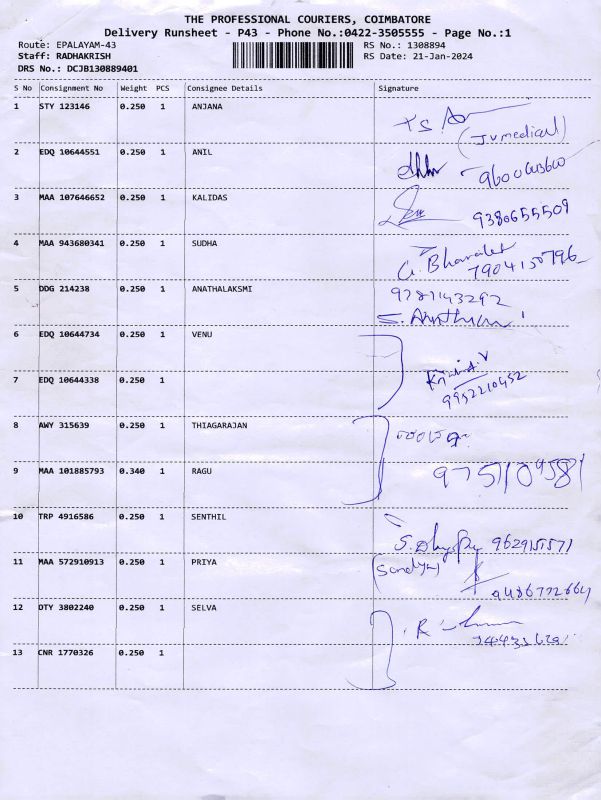 THE PROFESSIONAL COURIERS, COIMBATORE
Delivery Runsheet - P43 - Phone No.:0422-3505555 - Page No.:1
Route: EPALAYAM-43 RS No.: 1308894
Staff: RADHAKRISH RS Date: 21-Jan-2024
DRS No.: DCJB130889401
S No Consignment No Weight PCS Consignee Details Signature
1 STY 123146 0.250 1 ANJANA
(JV medical)
2 EDQ 10644551 0.250 1 ANIL
3 MAA 107646652 0.250 1 KALIDAS
9380655509
4 MAA 943680341 0.250 1 SUDHA
G. Bharath
7904150796
5 DDG 214238 0.250 1 ANATHALAKSMI
6 EDQ 10644734 0.250 1 VENU
7 EDQ 10644338 0.250 1
9952210452
8 AWY 315639 0.250 1 THIAGARAJAN
9 MAA 101885793 0.340 1 RAGU
9751109581
10 TRP 4916586 0.250 1 SENTHIL
11 MAA 572910913 0.250 1 PRIYA
(Sandya)
9486772664
12 DTY 3802240 0.250 1 SELVA
13 CNR 1770326 0.250 1